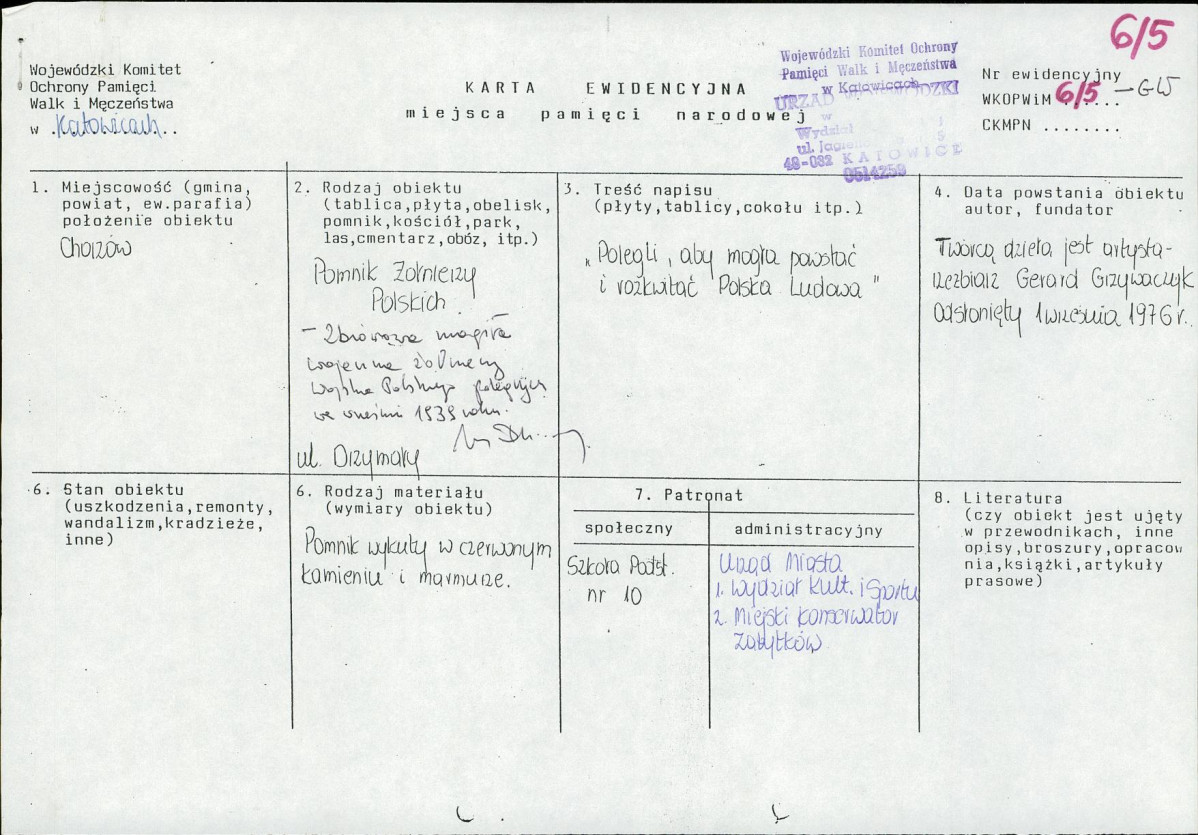 6/5
Wojewódzki Komitet
Ochrony Pamięci
Walk i Męczeństwa
w .Katowicach..
KARTA EWIDENCYJNA
miejsca pamięci narodowej
Wojewódzki Komitet Ochrony
Pamięci Walk i Męczeństwa
w Katowicach
URZĄD WOJEWÓDZKI
w
Wydział
ul. Jagiel
40-032 KATOWICE
0514259
Nr ewidencyjny
WKOPWiM 6/5 .... – GW
CKMPN ........
1. Miejscowość (gmina,
powiat, ew.parafia)
położenie obiektu
Chorzów
2. Rodzaj obiektu
(tablica,płyta,obelisk,
pomnik,kościół,park,
las,cmentarz,obóz, itp.)
Pomnik Żołnierzy
Polskich.
– Zbiorowa mogiła
wojenna żołnierzy
Wojska Polskiego poległych
we wrześniu 1939 roku.
ul. Drzymały
3. Treść napisu
(płyty,tablicy,cokołu itp.)
„Polegli, aby mogła powstać
i rozkwitać Polska Ludowa"
4. Data powstania obiektu
autor, fundator
Twórcą dzieła jest artysta-
rzeźbiarz Gerard Grzywaczyk
Odsłonięty 1 września 1976 r.
6. Stan obiektu
(uszkodzenia,remonty,
wandalizm,kradzieże,
inne)
6. Rodzaj materiału
(wymiary obiektu)
Pomnik wykuty w czerwonym
kamieniu i marmurze.
7. Patronat
społeczny
administracyjny
Szkoła Podst.
nr 10
Urząd Miasta
1. Wydział Kult. i Sportu
2. Miejski Konserwator
Zabytków
8. Literatura
(czy obiekt jest ujęty
w przewodnikach, inne
opisy,broszury,opracow
nia,książki,artykuły
prasowe)